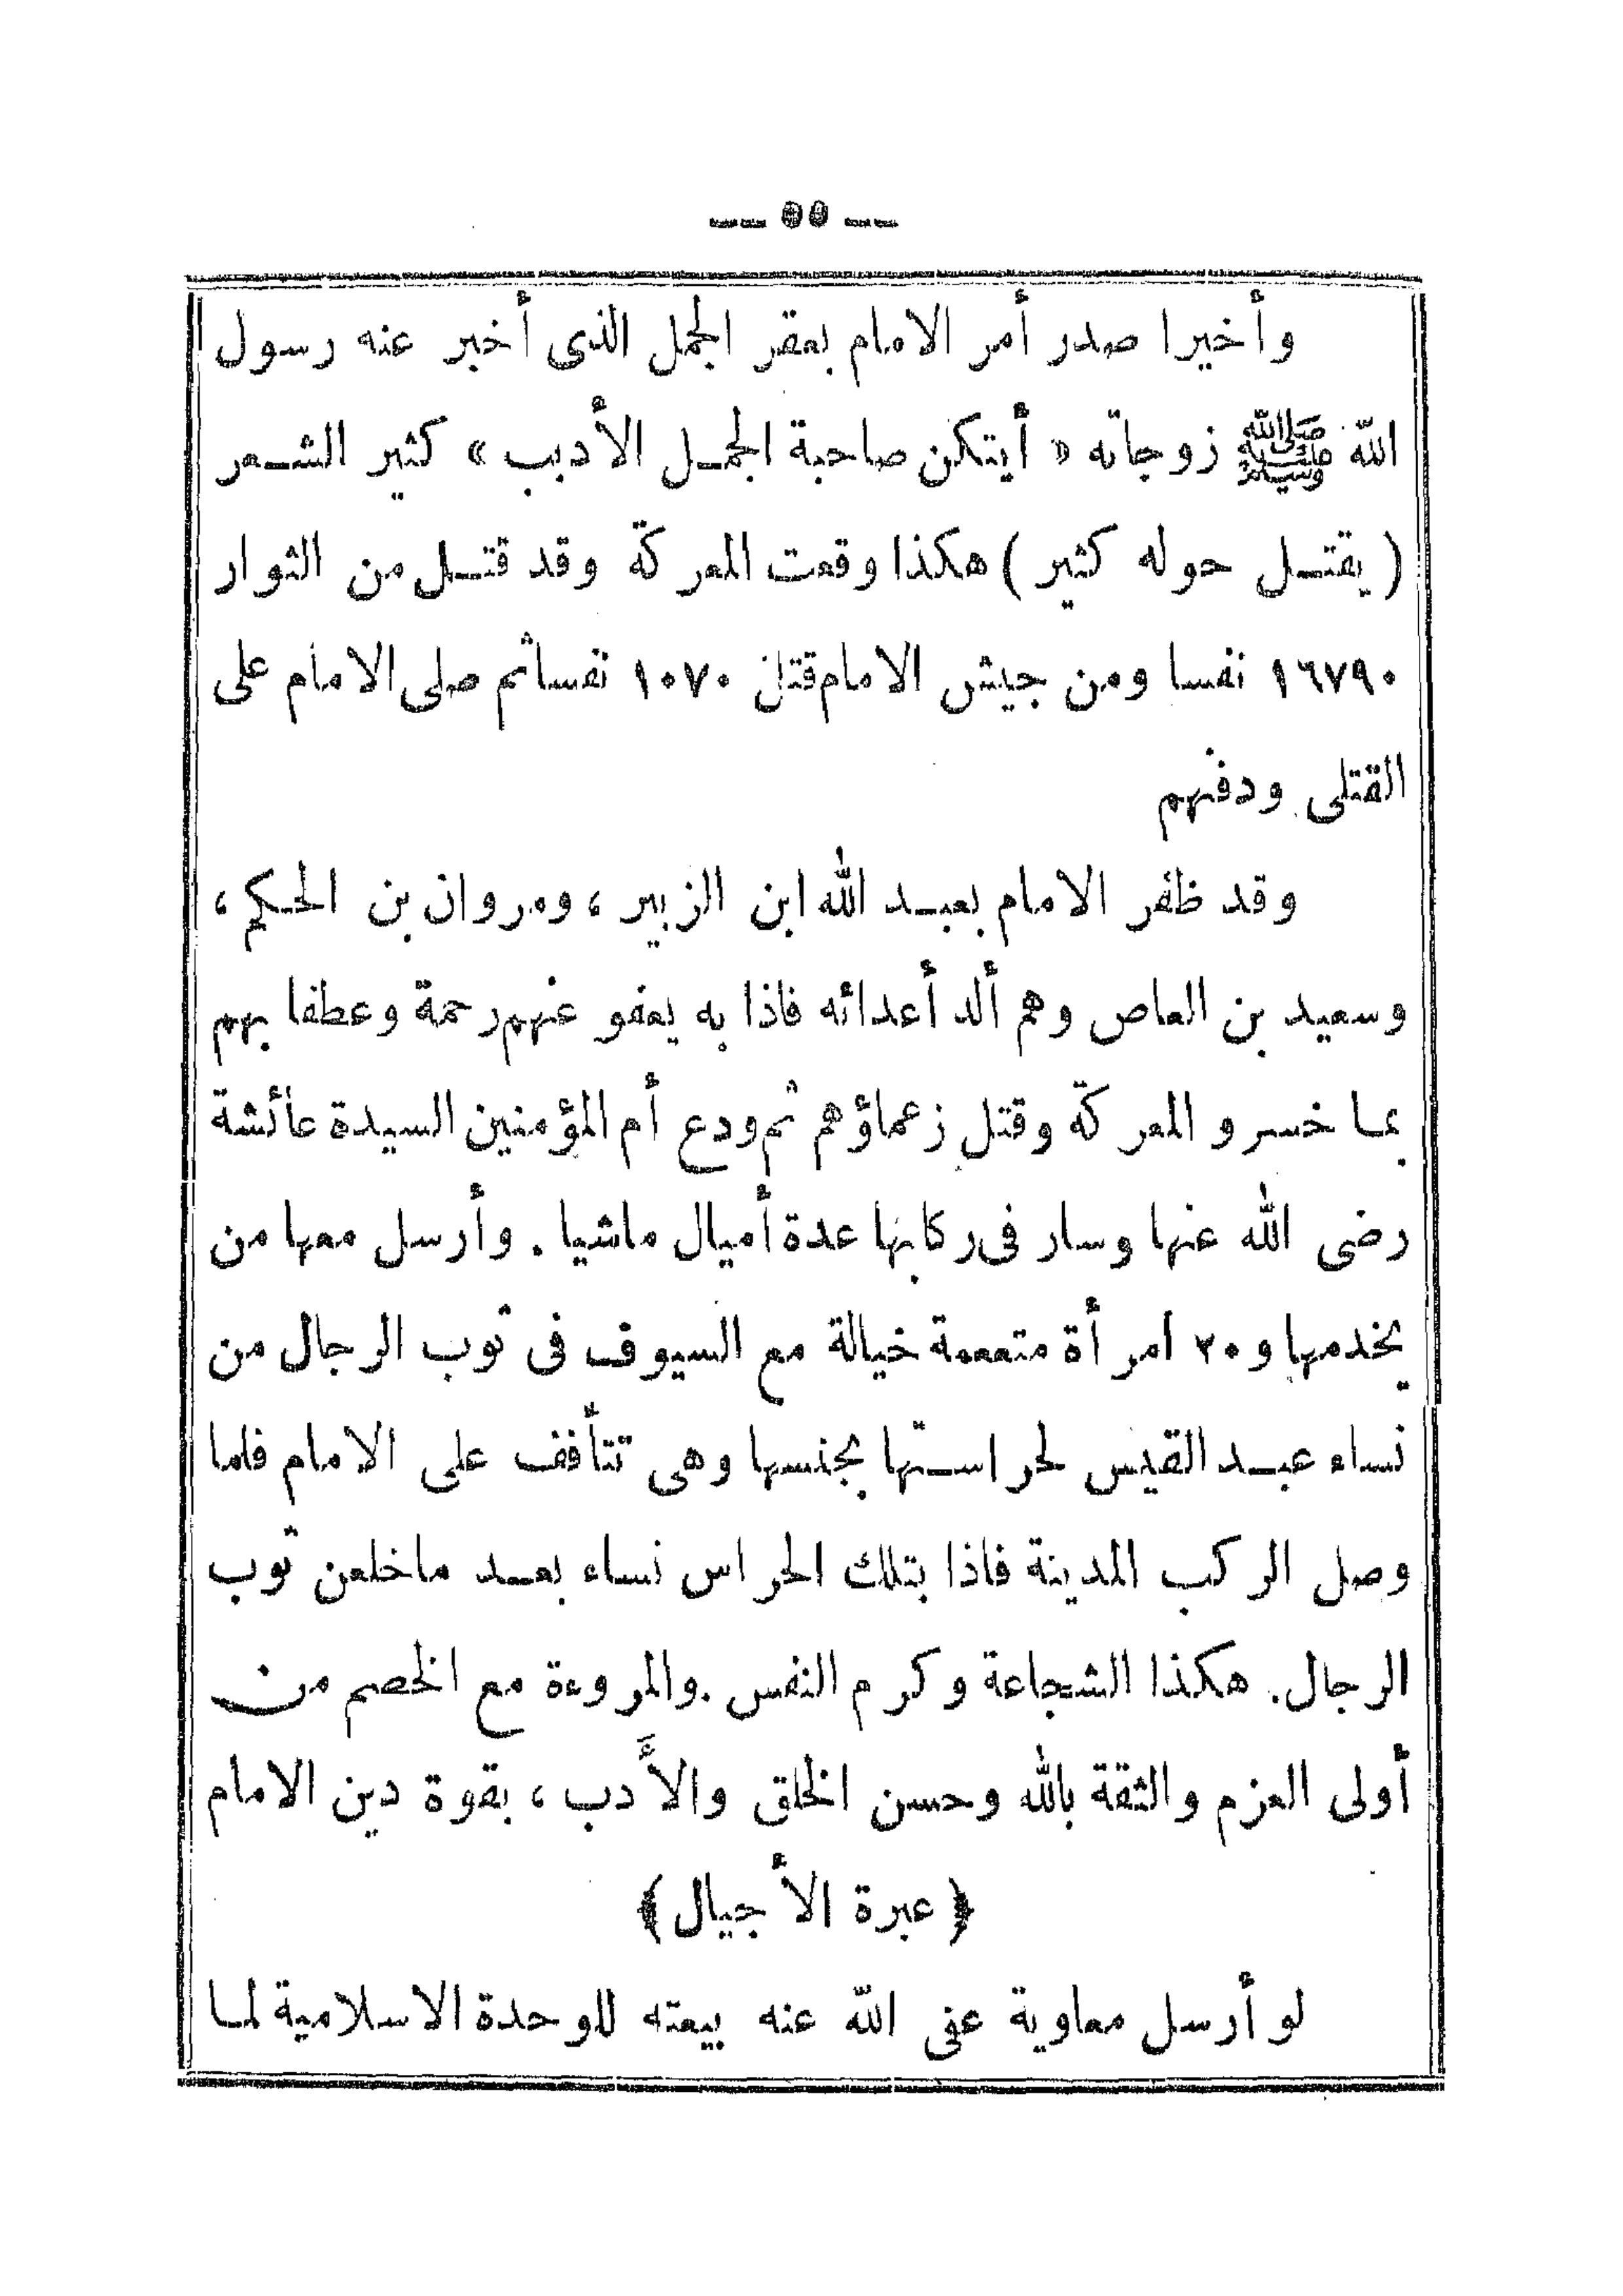 — ٥٥ —
وأخيرا صدر أمر الامام بعقر الجمل الذى أخبر عنه رسول
الله ﷺ زوجاته « أيتكن صاحبة الجمل الأدبب » كثير الشعر
( يقتل حوله كثير ) هكذا وقعت المعركة وقد قتل من الثوار
١٦٧٩٠ نفسا ومن جيش الامام قتل ١٠٧٠ نفسا ثم صلى الامام على
القتلى ودفنهم
وقد ظفر الامام بعبد الله ابن الزبير ، ومروان بن الحكم ،
وسعيد بن العاص وهم ألد أعدائه فاذا به يعفو عنهم رحمة وعطفا بهم
بما خسرو المعركة وقتل زعماؤهم ثم ودع أم المؤمنين السيدة عائشة
رضى الله عنها وسار فى ركابها عدة أميال ماشيا . وأرسل معها من
يخدمها و ٢٠ امرأة متعممة خيالة مع السيوف فى ثوب الرجال من
نساء عبد القيس لحراستها بجنسها وهى تتأفف على الامام فلما
وصل الركب المدينة فاذا بتلك الحراس نساء بعد ماخلعن ثوب
الرجال . هكذا الشجاعة وكرم النفس . والمروءة مع الخصم من
أولى العزم والثقة بالله وحسن الخلق والأدب ، بقوة دين الامام
﴿ عبرة الأجيال ﴾
لو أرسل معاوية عفى الله عنه بيعته للوحدة الاسلامية لما